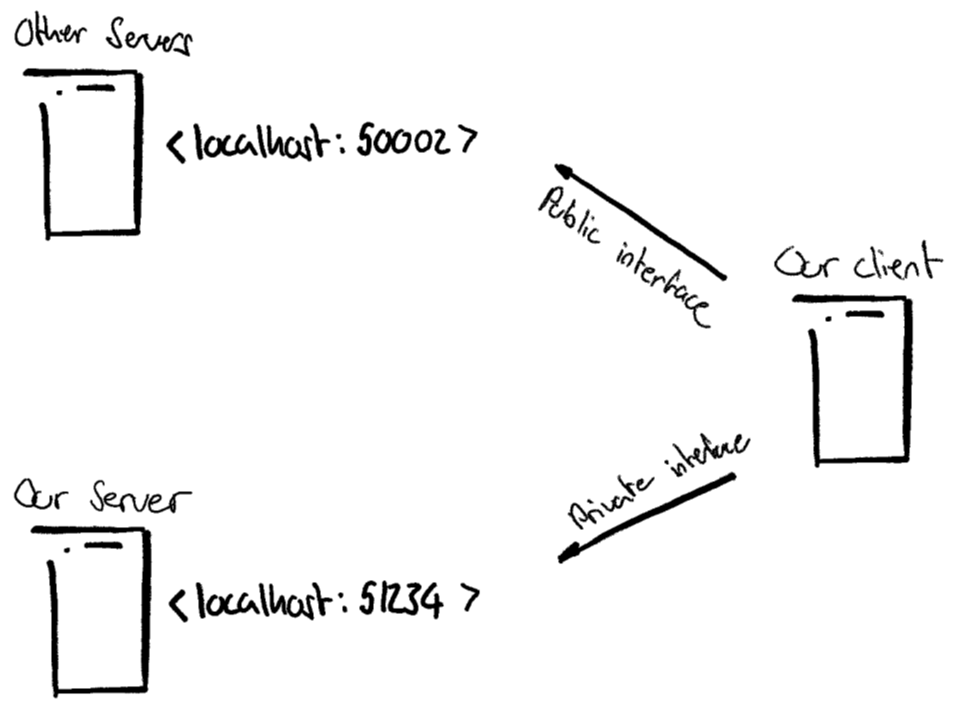 Other Servers
<localhost: 50002>
Public interface
Our client
Private interface
Our Server
<localhost: 51234 >